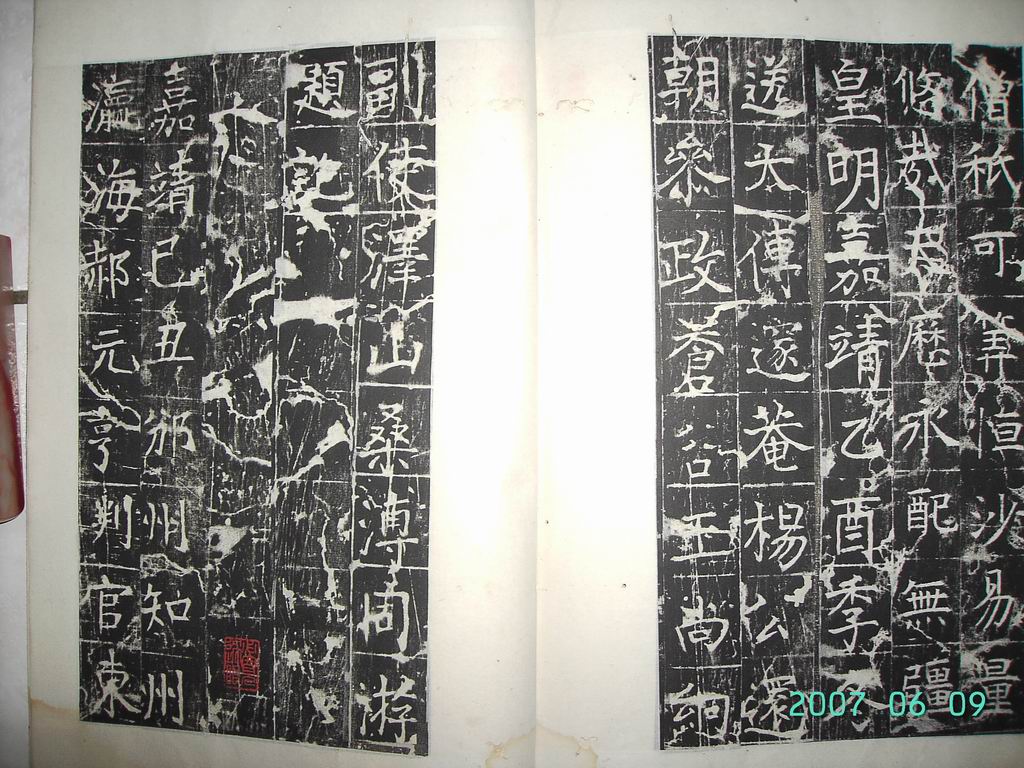 僧祇可筭恒沙易量
悠哉曆永配無疆
皇明嘉靖乙酉季
送天傅邃菴楊公還
朝參政蒼谷王尚絅
副使澤山桑溥同游
題記
嘉靖己丑邠州知州
瀛海郝元亨判官東
2007 06 09